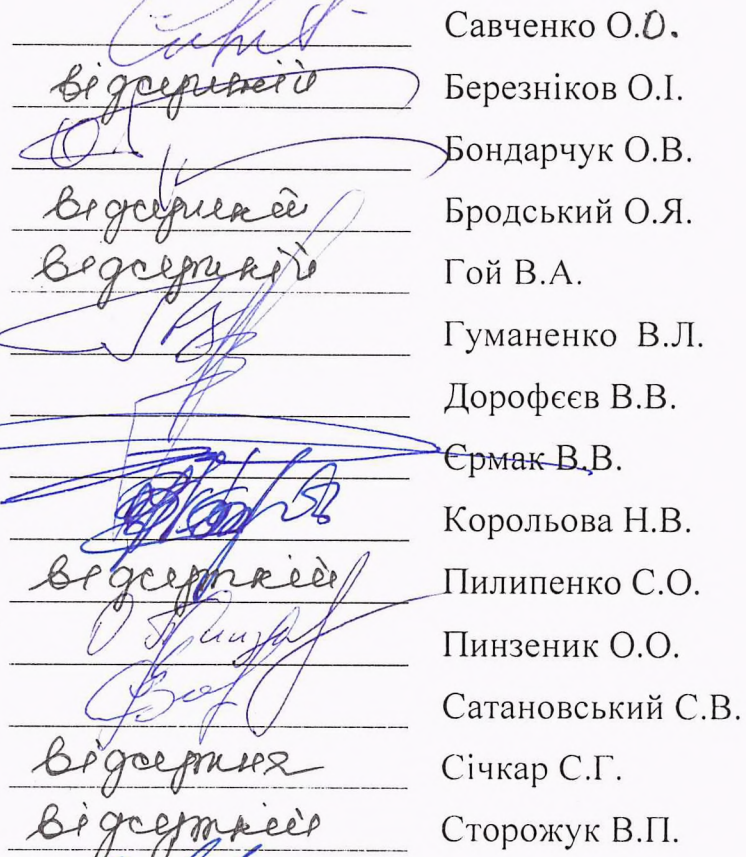 Савченко О.О.
відсутній Березніков О.І.
Бондарчук О.В.
відсутній Бродський О.Я.
відсутній Гой В.А.
Гуманенко В.Л.
Дорофєєв В.В.
Єрмак В.В.
Корольова Н.В.
відсутній Пилипенко С.О.
Пинзеник О.О.
Сатановський С.В.
відсутня Січкар С.Г.
відсутній Сторожук В.П.